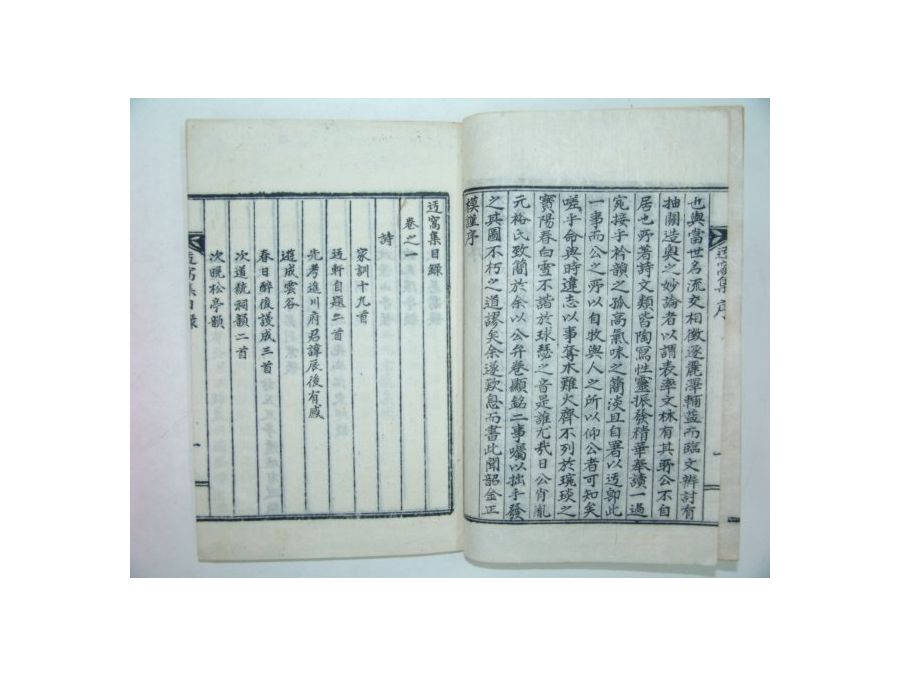 也與當世名流交相徵逐麗澤輔益而臨文辨討有
抽關造奧之妙論者以謂表率文林有其
公不自
居也所著詩文類皆陶寫性靈振發精華莊讀一過
宛接乎衿韻之孤高氣味之簡淡且自署以迃
此
一事而公之所以自牧與人之所以仰公者可知矣
嗟乎命與時違志以事奪木難火齊不列於琬琰之
寶陽春白雪不諧於球瑟之音是誰尤哉日公肖胤
元裕氏致簡於余以公弁卷顯銘二事囑以拙手發
之其圖不朽之道謬矣余遂歎息而書此聞韶金正
模謹序
迃窩集序
迃窩集目錄
卷之一
詩
家訓十九首
迃軒自題二首
先考進川府君諱辰後有感
遊成雲谷
春日醉後謾成三首
次道統祠韻二首
次晩松亭韻
迃窩集目錄
一